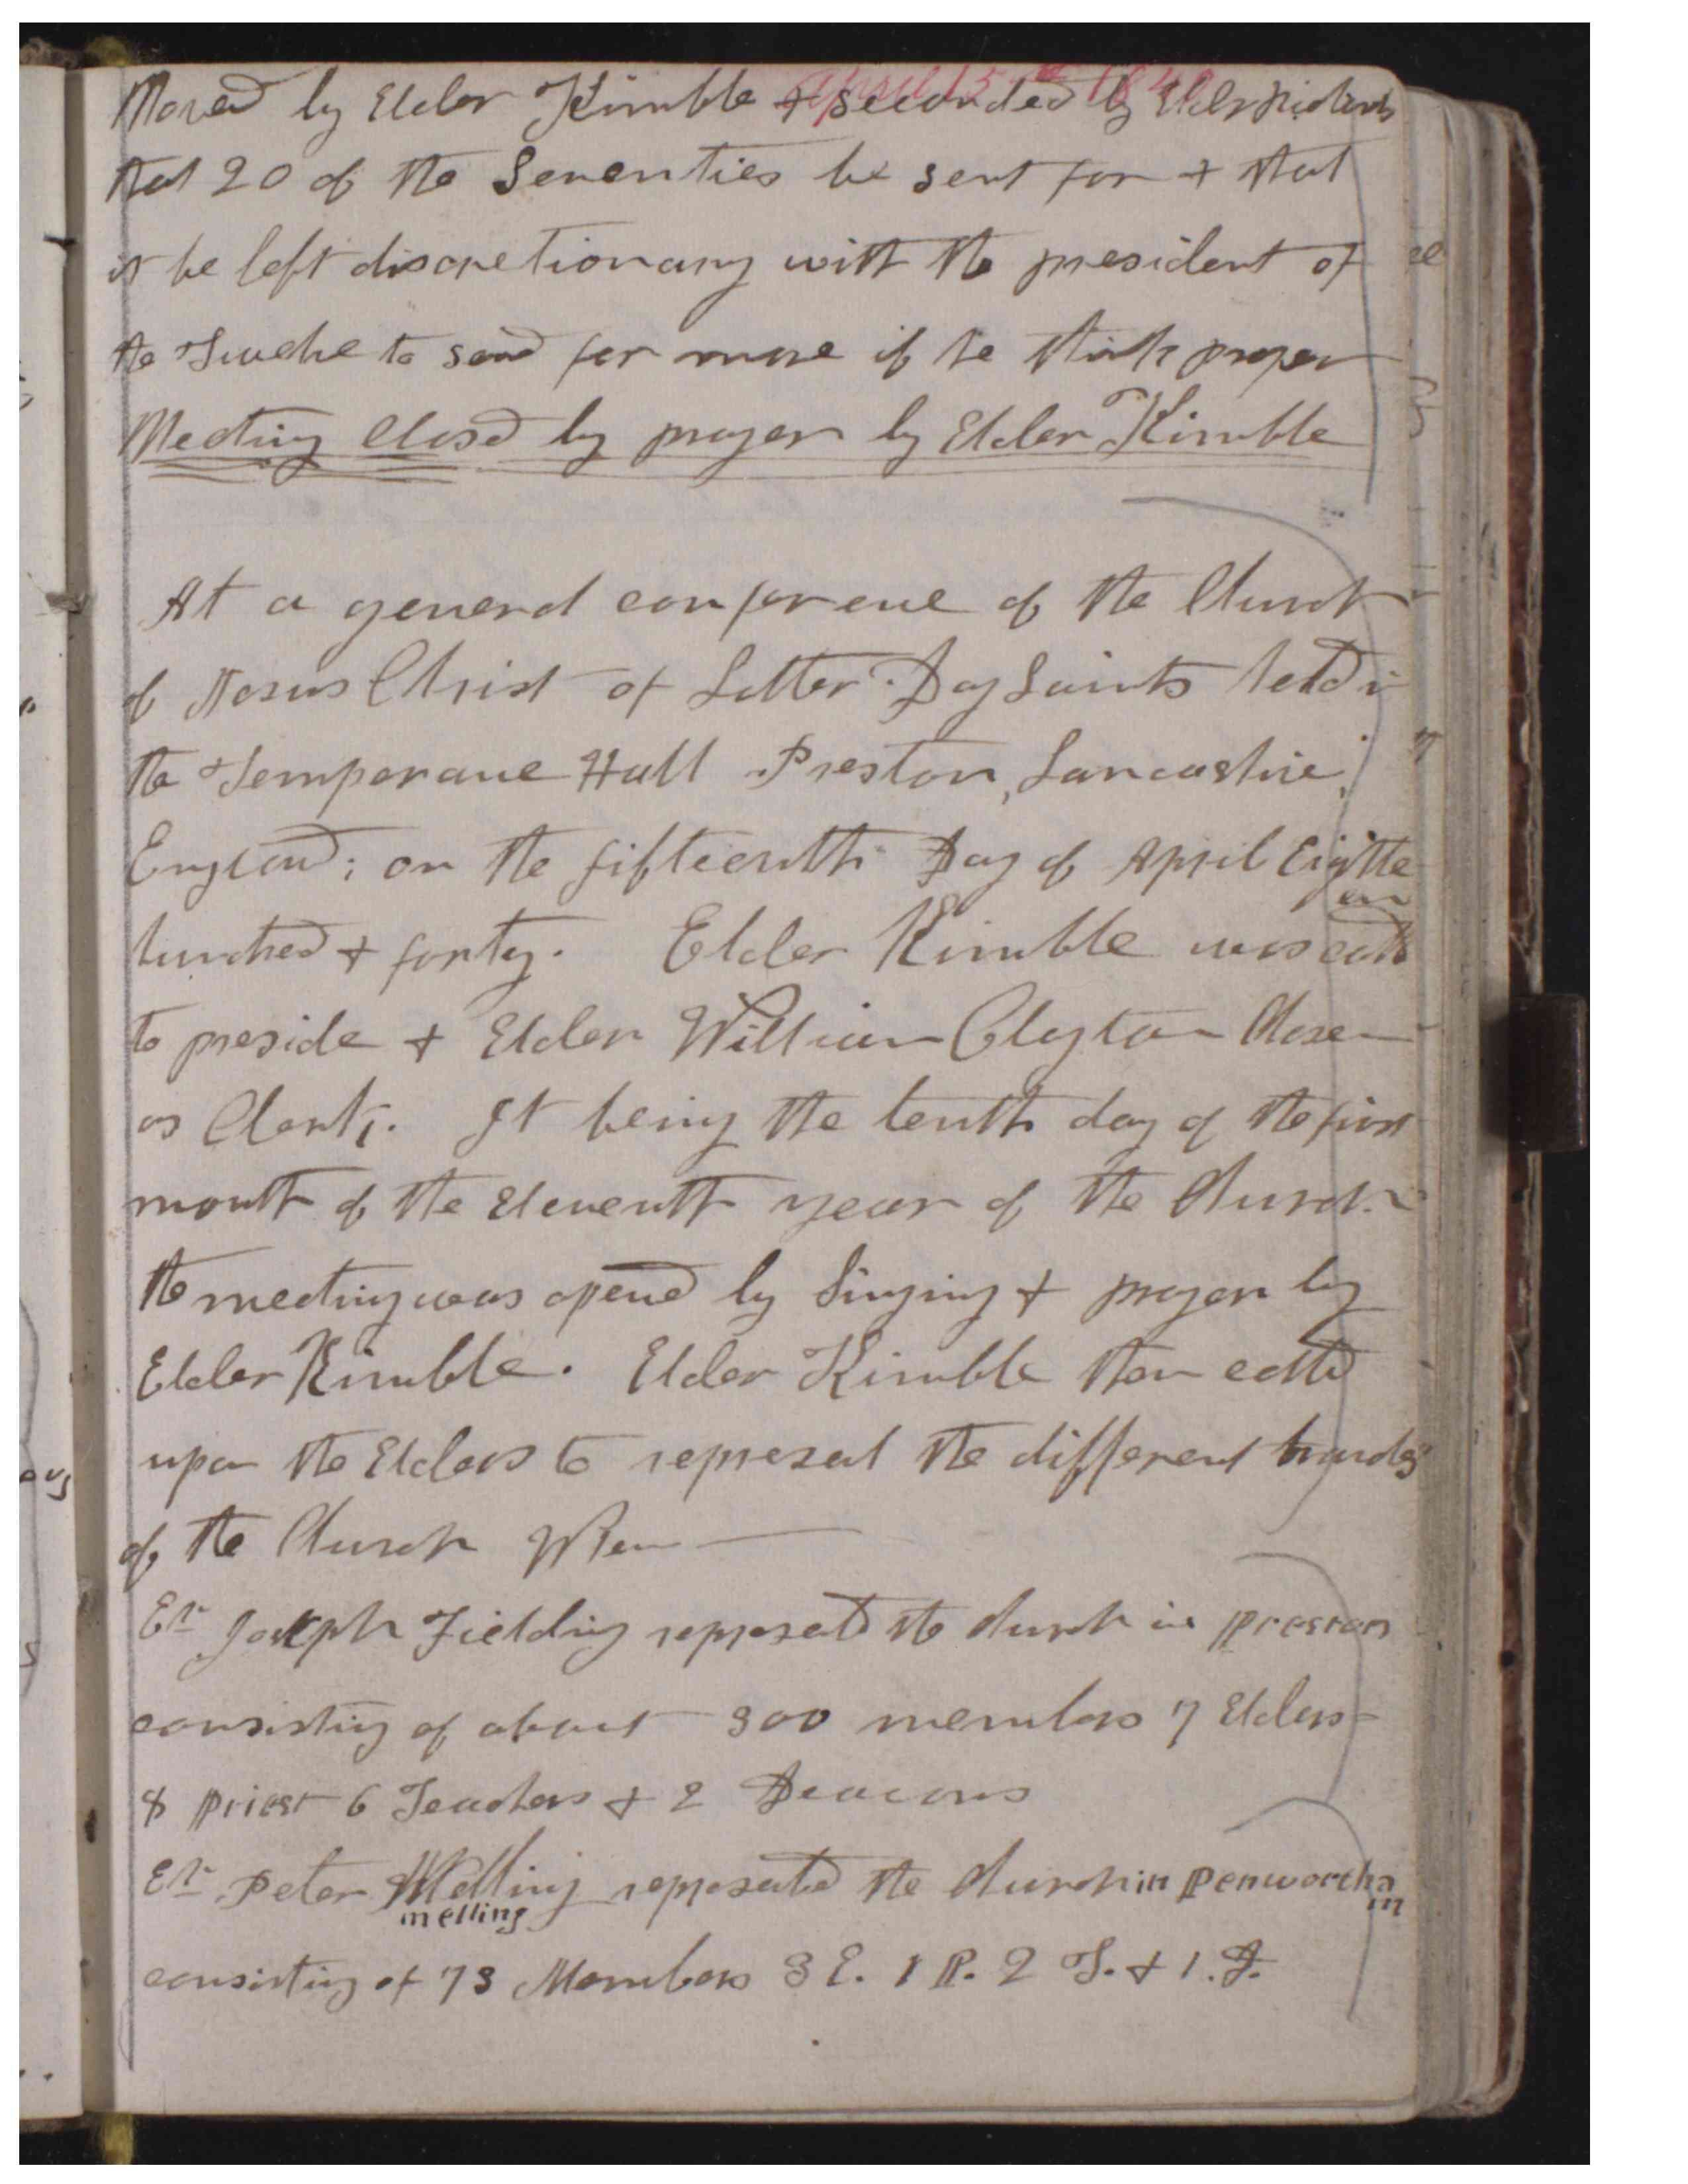 April 15th 1840
Moved by Elder Kimble & seconded by Elder Richards
that 20 of the Seventies be sent for & that
it be left discretionary with the president of
the Twelve to send for more if he think proper
Meeting closed by prayer by Elder Kimble
At a general conference of the Church
of Jesus Christ of Latter Day Saints held in
the Temperance Hall Preston, Lancashire,
England; on the fifteenth Day of April Eightte
en
hundred & forty. Elder Kimble was calld
to preside & Elder William Clayton Chosen
as Clerk. It being the tenth day of the first
month of the Eleventh year of the Church
the meeting was opend by Singing & prayer by
Elder Kimble. Elder Kimble then calld
upon the Elders to represent the different branches
of the Church When
Er Joseph Fielding represented the church in Preston
consisting of about 300 members 7 Elders
8 priest 6 Teachers & 2 Deacons
Er Peter Melling represented the church in Penwortha
melling
m
consisting of 73 Members 3 E. 1 P. 2 T. & 1. D.